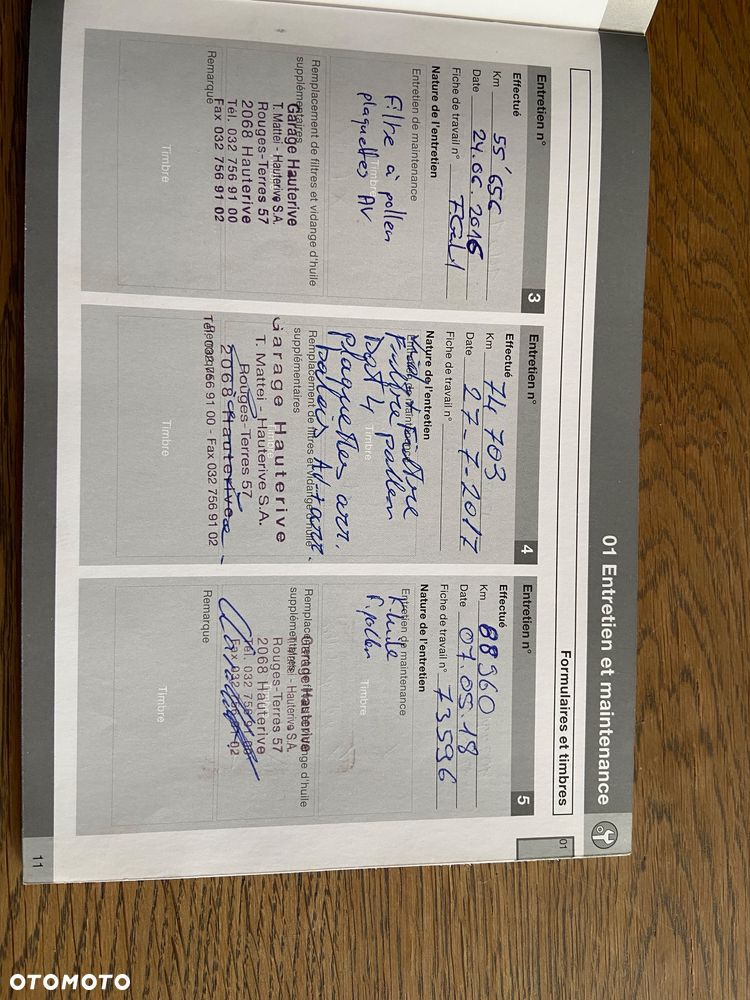 01 Entretien et maintenance
Formulaires et timbres
01
Entretien n° 3
Effectué
Km 55'656
Date 24.06.2016
Fiche de travail n°
Nature de l'entretien
Entretien de maintenance
Filtre à pollen
plaquettes AV.
Timbre
Remplacement de filtres et vidange d'huile
supplémentaires
Garage Hauterive
T. Mattei - Hauterive S.A.
Rouges-Terres 57
2068 Hauterive
Tél. 032 756 91 00
Fax 032 756 91 02
Remarque
Timbre
Entretien n° 4
Effectué
Km 74 703
Date 27-7-2017
Fiche de travail n°
Nature de l'entretien
Entretien de maintenance
Filtre pollen
Dot 4
Timbre
plaquettes arr.
Remplacement de filtres et vidange d'huile
supplémentaires
Garage Hauterive
T. Mattei - Hauterive S.A.
Timbre
Rouges-Terres 57
2068 Hauterive
Tél. 032 756 91 00 - Fax 032 756 91 02
Remarque
Timbre
Entretien n° 5
Effectué
Km 88960
Date 07.05.18
Fiche de travail n° 73596
Nature de l'entretien
Entretien de maintenance
F. huile
F. pollen
Timbre
Remplacement de filtres et vidange d'huile
supplémentaires
Garage Hauterive
T. Mattei - Hauterive S.A.
Rouges-Terres 57
2068 Hauterive
Tél. 032 756 91 00
Fax 032 756 91 02
Remarque
Timbre
11
OTOMOTO